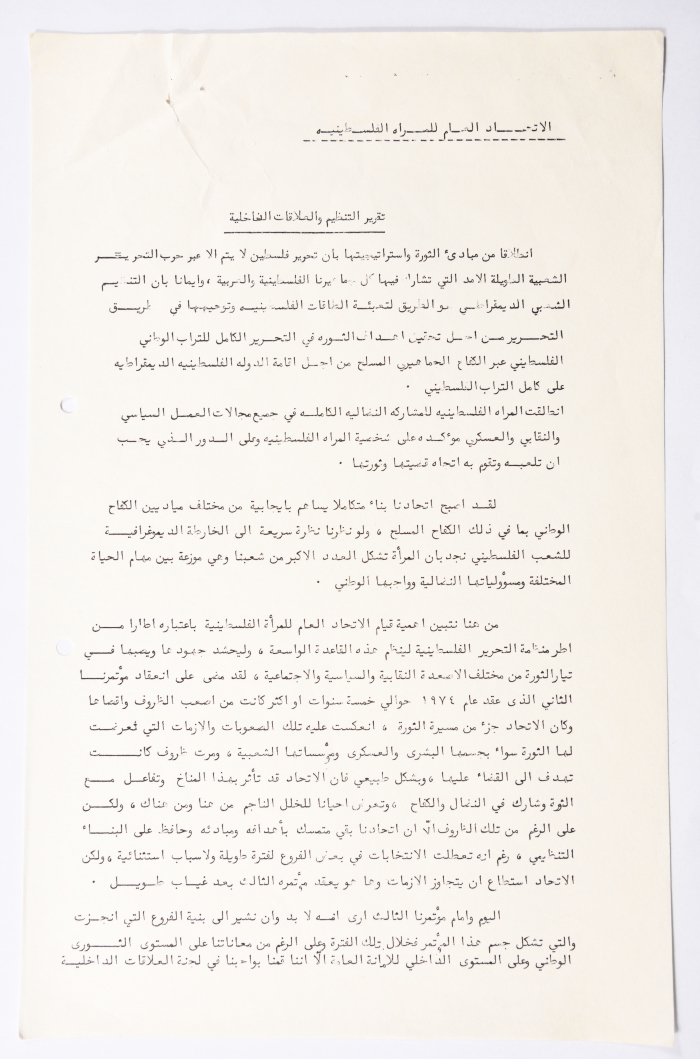 الاتحـــاد العـام للمـراه الفلسـطينيـه
تقرير التنظيم والعلاقات الداخلية
انطلاقا من مبادئ الثورة واستراتيجيتها بان تحرير فلسطين لا يتم الا عبر حرب التحريـــر
الشعبية الطويلة الامد التي تشارك فيها كل جماهيرنا الفلسطينية والعربية ، وايمانا بان التنظيـم
الشعبي الديمقراطـي هو الطريق لتعبئـة الطاقات الفلسطينيـه وتوجيهها في طريـــق
التحـريـر مـن اجـل تحقيق اهـداف الثـوره في التحرير الكامل للتراب الوطني
الفلسطيني عبر الكفاح الجماهيري المسلح من اجـل اقامة الدوله الفلسطينيه الديمقراطيه
على كامل التراب الفلسطيني .
انطلقت المراه الفلسطينيه للمشاركه النضاليه الكاملـه في جميع مجالات العمـل السياسي
والنقابي والعسكري مؤكـده على شخصية المراه الفلسطينيه وعلى الـدور الـذي يجـب
ان تلعبـه وتقوم به اتجاه قضيتها وثورتها .
لقـد اصبح اتحادنا بناء متكاملا يساهم بايجابية من مختلف مياديين الكفاح
الوطني بما في ذلك الكفاح المسلح ، ولو نظرنا نظرة سريعة الى الخارطة الديموغرافيـة
للشعب الفلسطيني نجد بان المرأة تشكل العدد الاكبر من شعبنا وهي موزعة بين مهام الحياة
المختلفة ومسؤولياتها النضالية وواجبها الوطني .
من هنا نتبين اهمية قيام الاتحاد العام للمرأة الفلسطينية باعتباره اطارا مـــن
اطر منظمة التحرير الفلسطينية لينظم هذه القاعدة الواسعة ، وليحشد جهودها ويصبها فـــي
تيار الثورة من مختلف الاصعدة النقابية والسياسية والاجتماعية ، لقد مضى على انعقاد مؤتمرنـــا
الثاني الذى عقد عام ١٩٧٤ حوالي خمسة سنوات او اكثر كانت من اصعب الظروف واقصاها
وكان الاتحاد جزء من مسيرة الثورة ، انعكست عليه تلك الصعوبات والازمات التي تعرضـت
لها الثورة سواء بجسمها البشرى والعسكرى ومؤسساتها الشعبية ، ومرت ظروف كانـــــت
تهدف الى القضاء عليها ، وبشكل طبيعي فان الاتحاد قد تأثر بهذا المناخ وتفاعـل مـــع
الثورة وشارك في النضال والكفاح ، وتعرض احيانا للخلل الناجم من هنا ومن هناك ، ولكـــن
على الرغم من تلك الظروف الا ان اتحادنا بقي متمسك بأهدافه ومبادئه وحافظ على البنــاء
التنظيمي ، رغم انه تعطلت الانتخابات في بعض الفروع لفترة طويلة ولاسباب استثنائية ، ولكن
الاتحاد استطاع ان يتجاوز الازمات وها هو يعقد مؤتمره الثالث بعد غياب طويـــل .
اليوم وامام مؤتمرنا الثالث ارى انـه لا بد وان نشير الى بنية الفروع التي انجـزت
والتي تشكل جسم هذا المؤتمر فخلال تلك الفترة وعلى الرغم من معاناتنا على المستوى الثـــورى
الوطني وعلى المستوى الداخلي للأمانة العامة الا اننا قمنا بواجبنا في لجنة العلاقات الداخليـــة